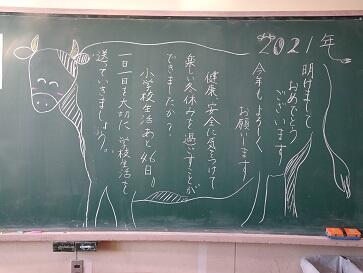 2021年
明けまして
おめでとう
ございます
今年もよろしく
お願いします
健康、安全に気をつけて
楽しい冬休みを過ごすことが
できましたか?
小学校生活あと46日!
一日一日を大切に、学校生活を
送っていきましょう。